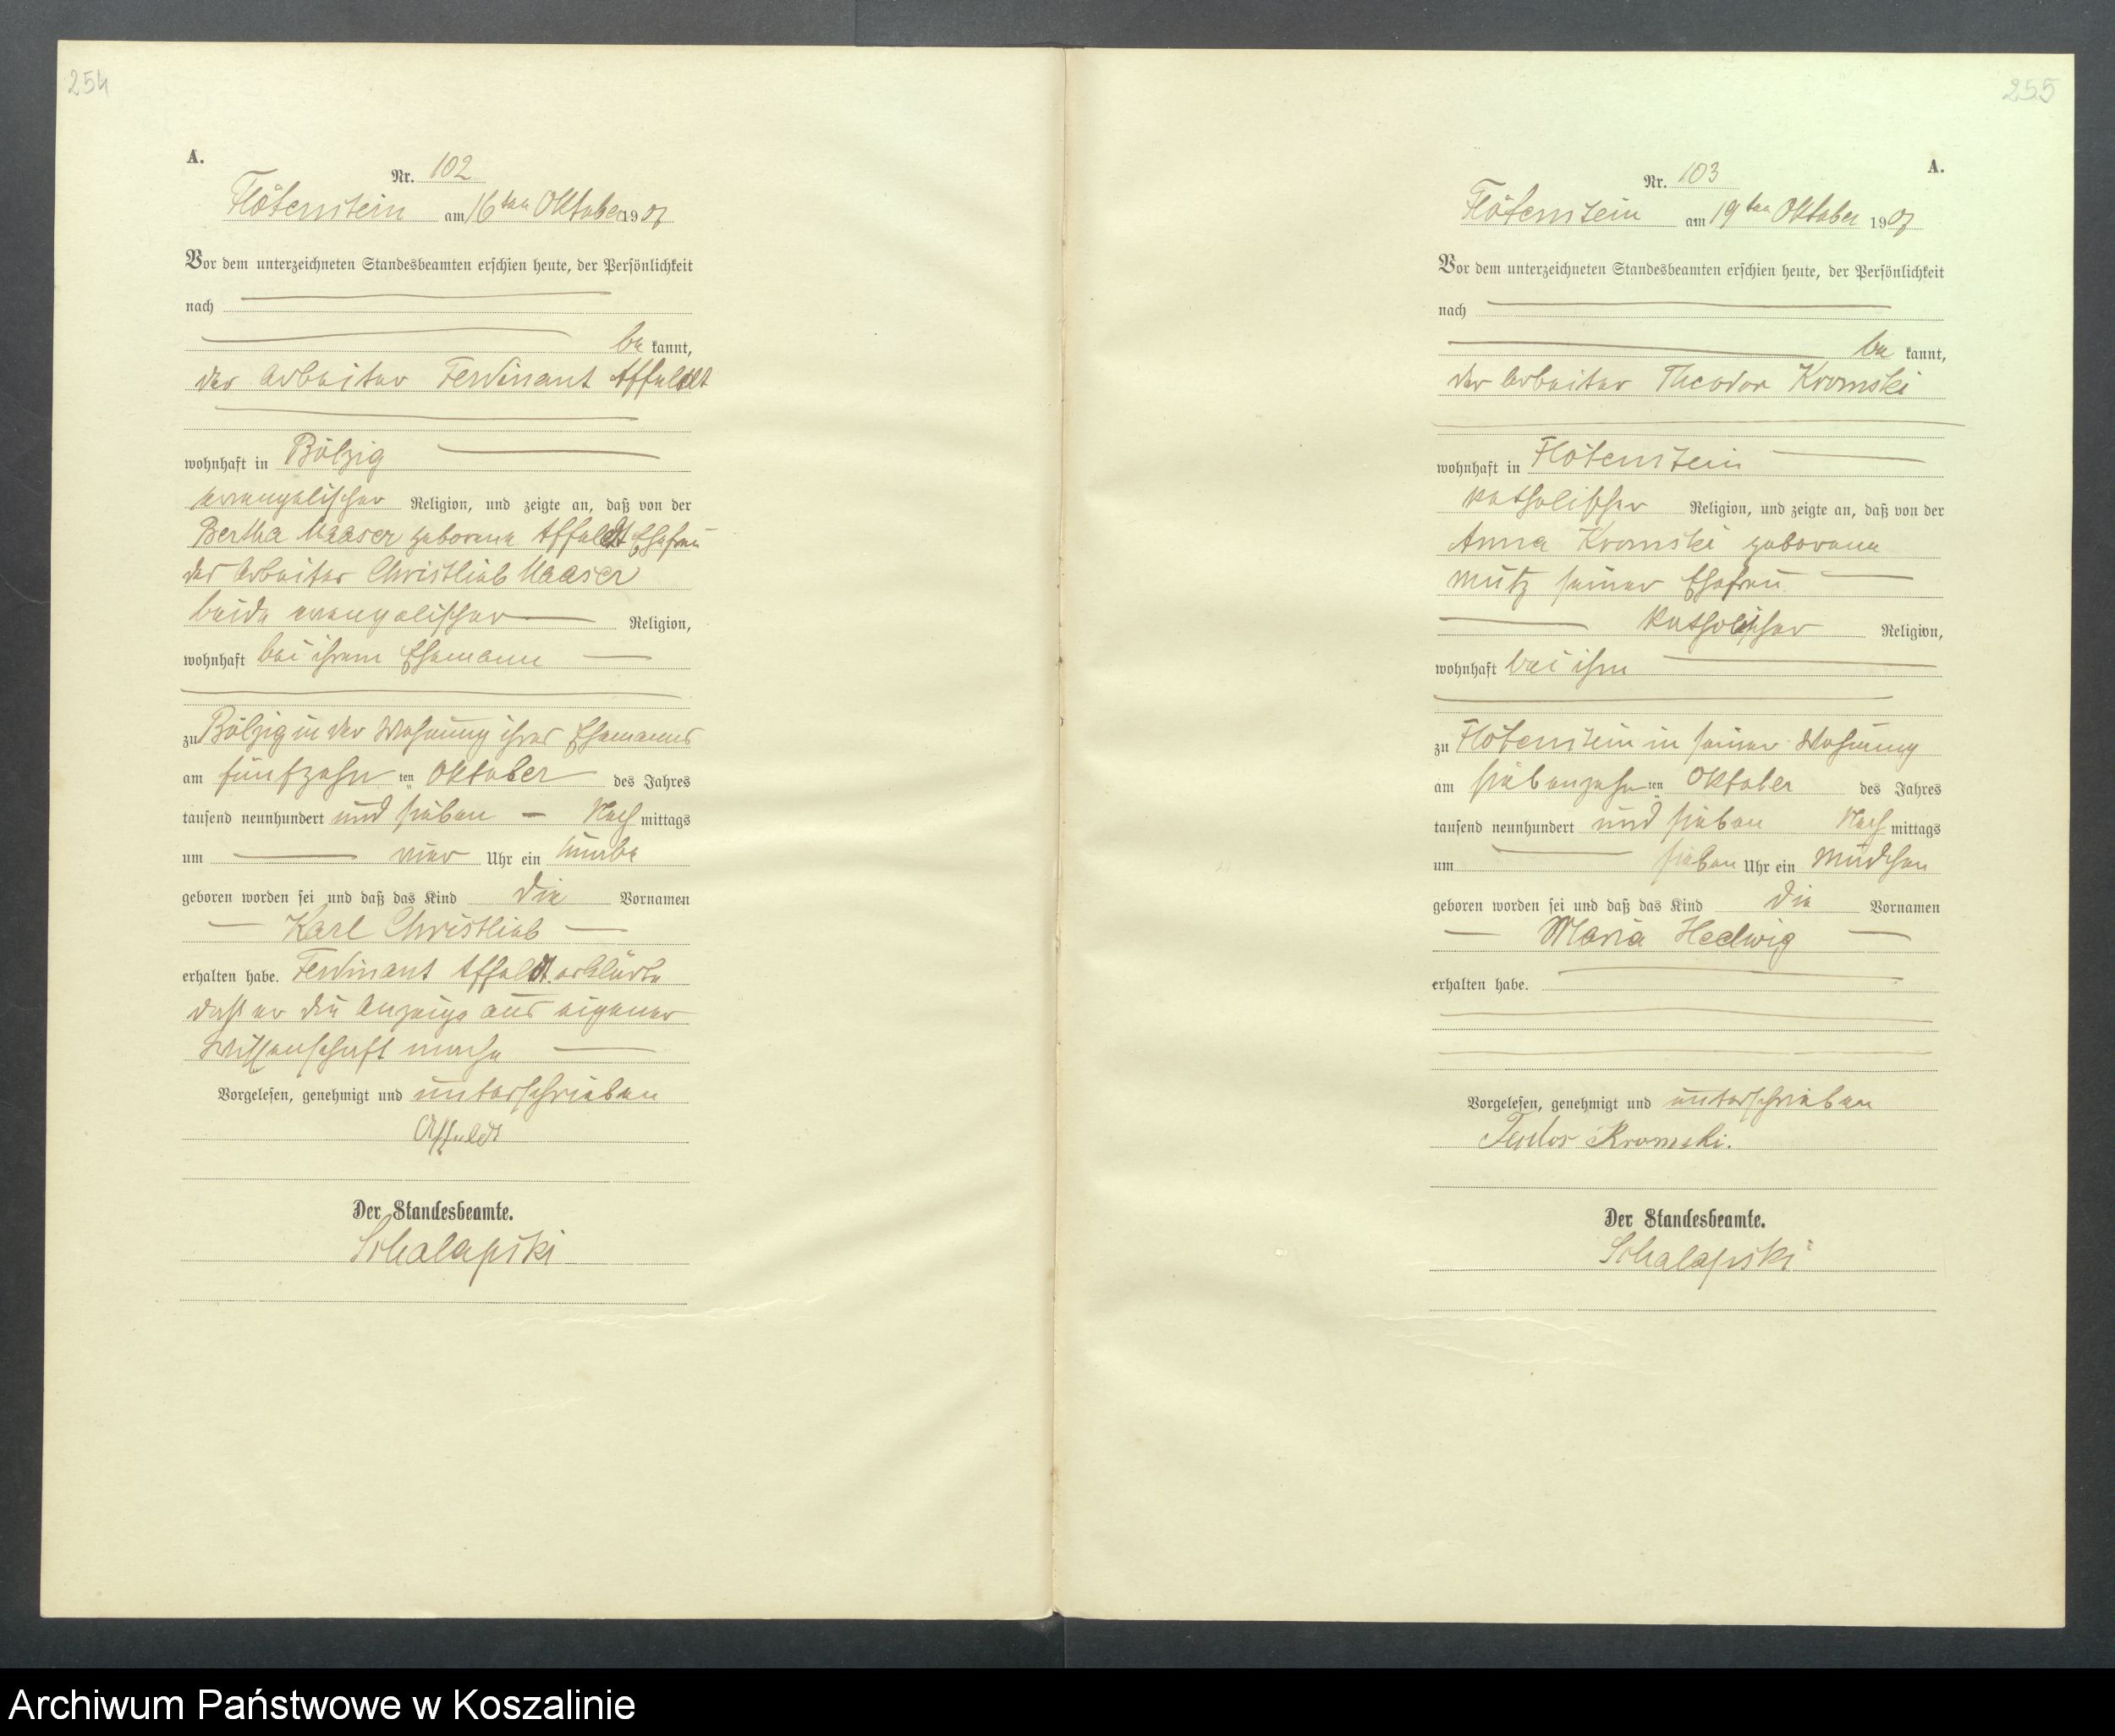 254
A.
Nr. 102
Flötenstein am 16ten Oktober 1907
Vor dem unterzeichneten Standesbeamten erschien heute, der Persönlichkeit
nach
be kannt,
der Arbeiter Ferdinant Affeldt
wohnhaft in Bölzig
evangelischer Religion, und zeigte an, daß von der
Bertha Maaser geborene Affeldt Ehefrau
des Arbeiter Christlieb Maaser
beide evangelischer Religion,
wohnhaft bei ihrem Ehemann
zu Bölzig in der Wohnung ihres Ehemannes
am fünfzehn ten Oktober des Jahres
tausend neunhundert und sieben Nach mittags
um vier Uhr ein Knabe
geboren worden sei und daß das Kind die Vornamen
Karl Christlieb
erhalten habe. Ferdinant Affeldt erklärte
daß er die Anzeige aus eigener
Wissenschaft mache
Vorgelesen, genehmigt und unterschrieben
Affeldt
Der Standesbeamte.
Schalapski
255
A.
Nr. 103
Flötenstein am 19ten Oktober 1907
Vor dem unterzeichneten Standesbeamten erschien heute, der Persönlichkeit
nach
be kannt,
der Arbeiter Theodor Kromski
wohnhaft in Flötenstein
katholischer Religion, und zeigte an, daß von der
Anna Kromski geborene
Mutz seiner Ehefrau
katholischer Religion,
wohnhaft bei ihm
zu Flötenstein in seiner Wohnung
am siebenzehn ten Oktober des Jahres
tausend neunhundert und sieben Nach mittags
um sieben Uhr ein Mädchen
geboren worden sei und daß das Kind die Vornamen
Maria Hedwig
erhalten habe.
Vorgelesen, genehmigt und unterschrieben
Teodor Kromski.
Der Standesbeamte.
Schalapski
Archiwum Państwowe w Koszalinie